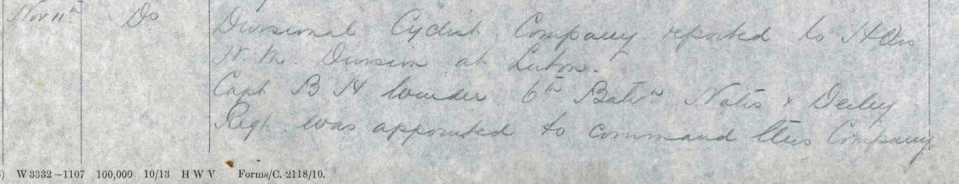 Nov 11th Do Divisional Cyclist Company reported to Hdqrs
N. M. Division at Luton.
Capt B H 6th Battn Notts & Derby
Regt was appointed to command this Company
W 3332—1107 100,000 10/13 H W V Forms/C. 2118/10.